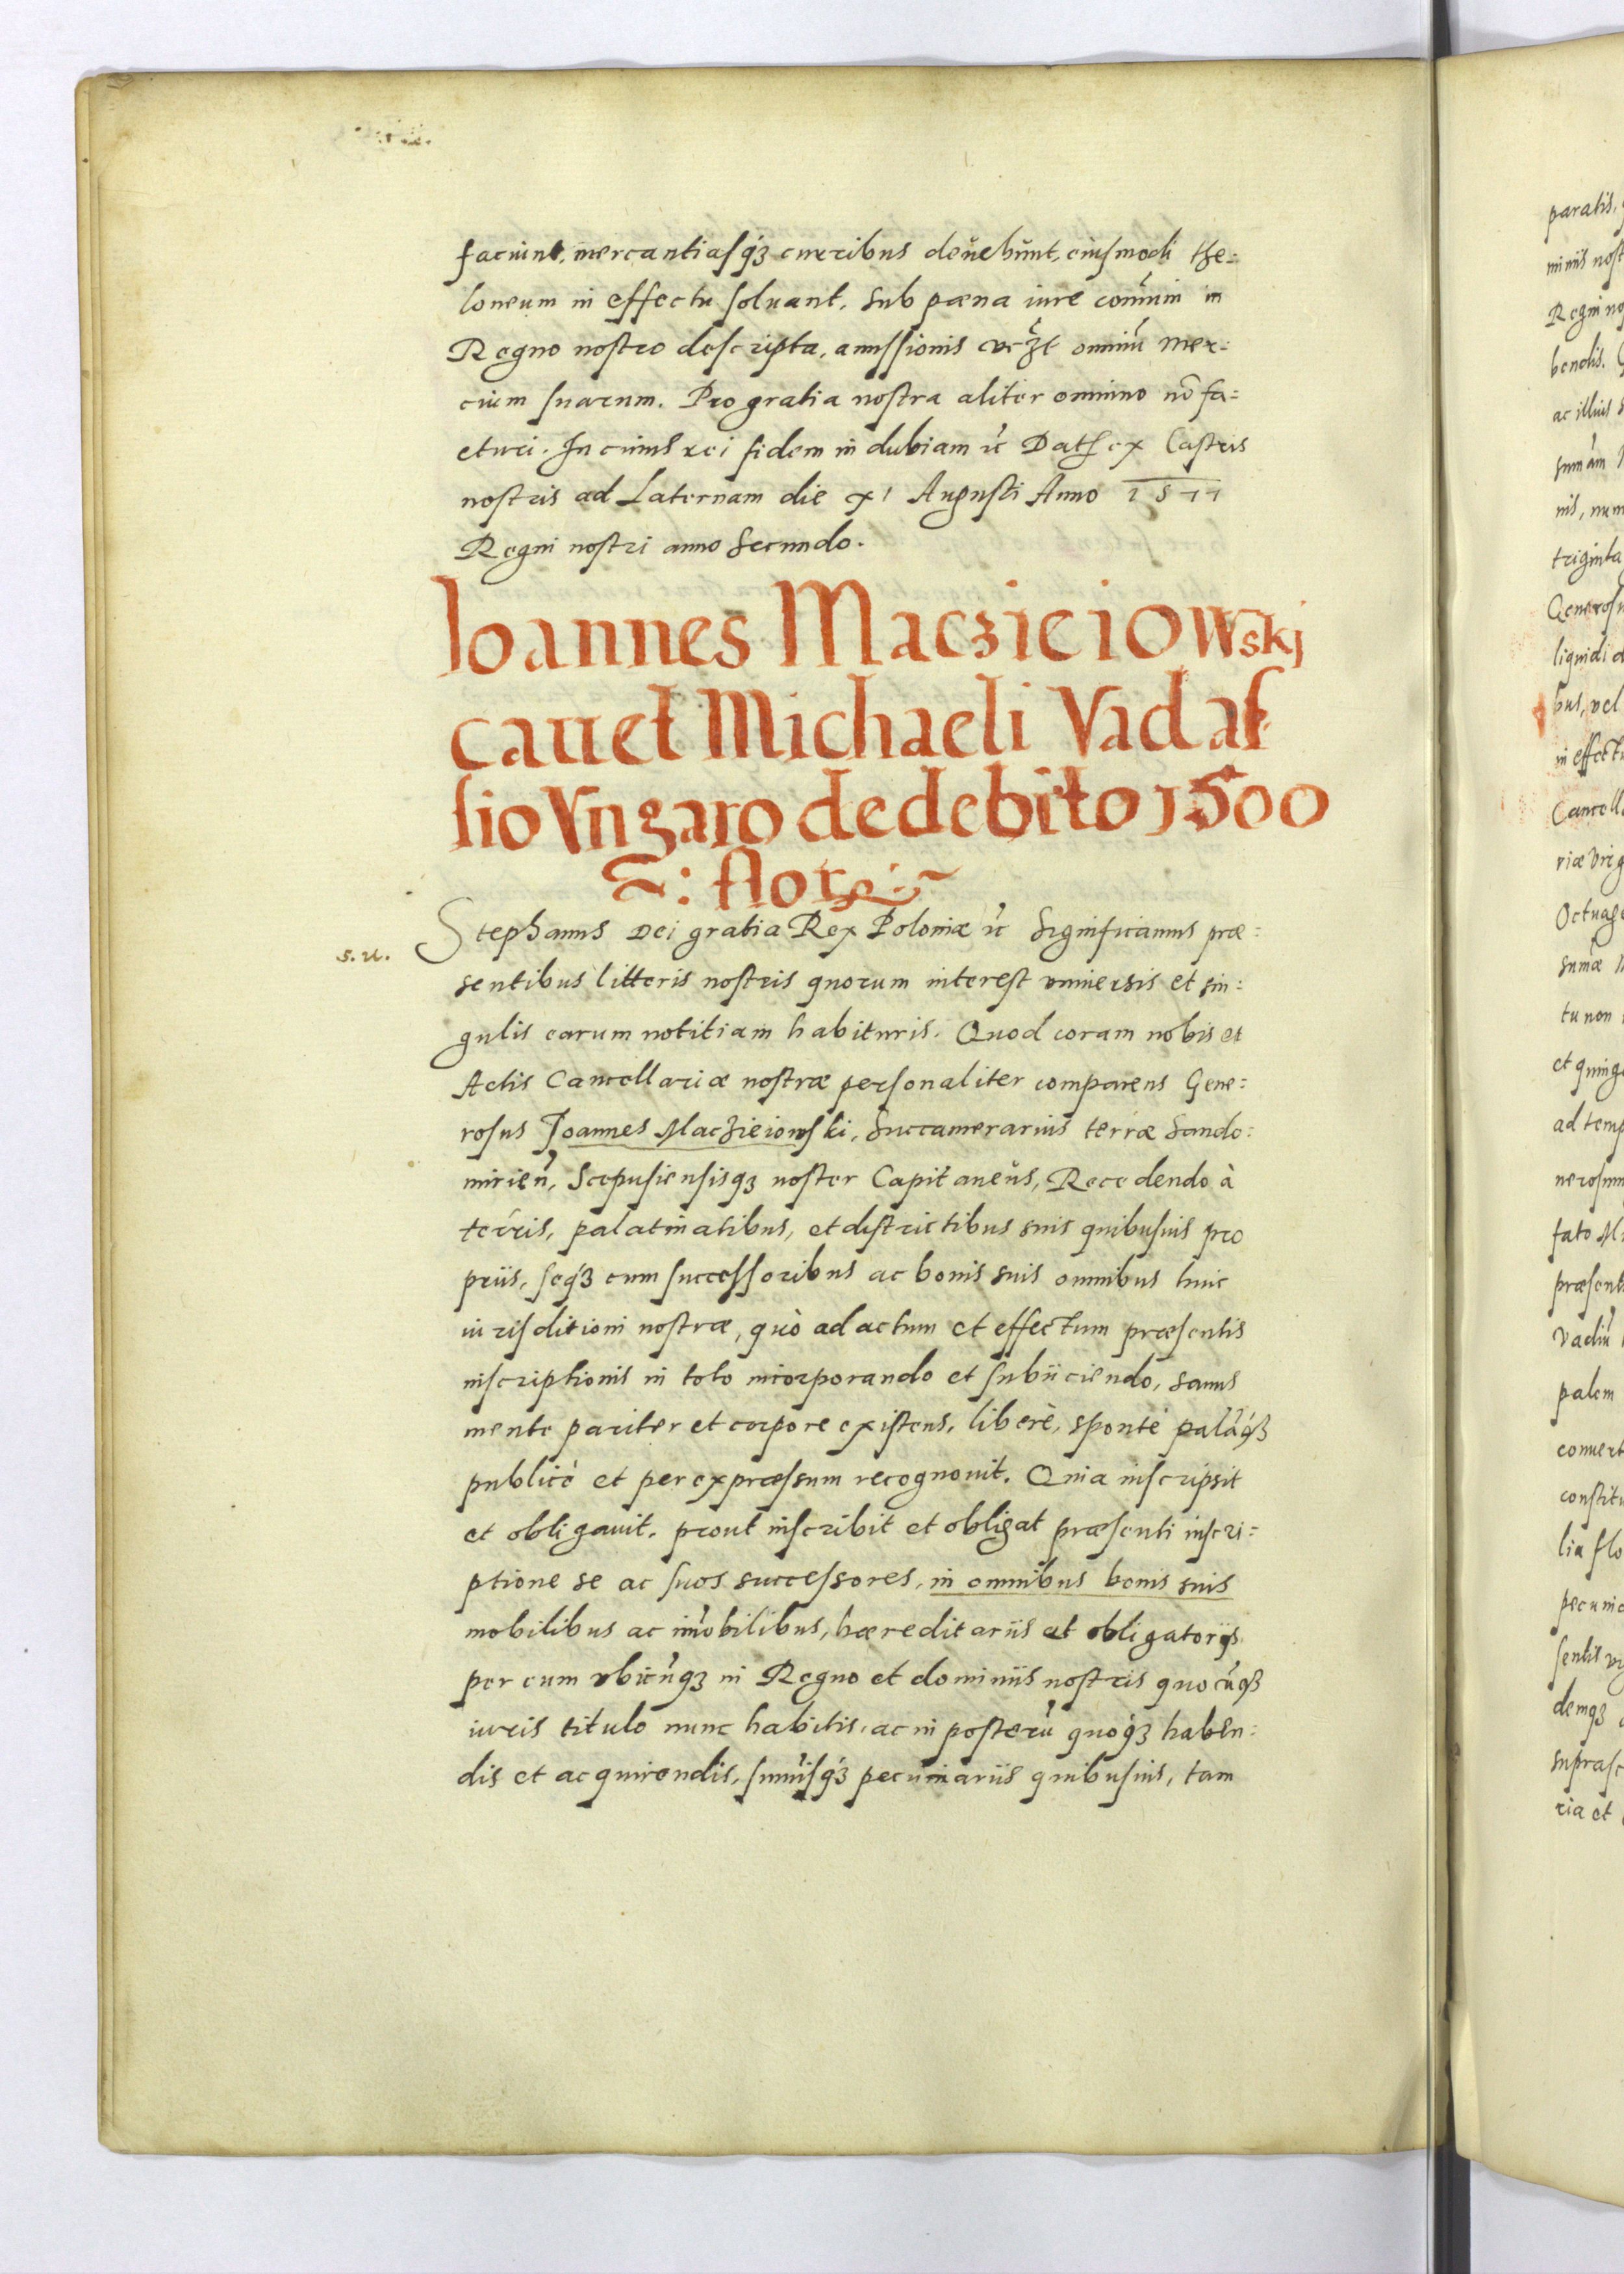 faciunt, mercantiasq́ꝫ curribus deǔehǔnt, eiusmodi the:
loneum in effectu soluant, sub pæna iure com̃uni in
Regno nostro descripta, amissionis omniũ mer:
cium suarum. Pro gratia nostra aliter omnino nõ fa:
cturi. In cuius rei fidem indubiam ꝛc Dat ex Castris
nostris ad Laternam die XI Augusti Anno 1577
Regni nostri anno Secundo.
Ioannes Maczieiowski
cauet Michaeli Vadas
sio Vngaro de debito 1500
~: flor :~
s. u.
Stephanus Dei gratia Rex Poloniæ ꝛc Significamus præ:
sentibus litteris nostris quorum interest vniuersis et sin:
gulis earum notitiam habituris. Quod coram nobis et
Actis Cancellariæ nostræ personaliter comparens Gene:
rosus Joannes Maczieiowski, Succamerarius terræ Sando:
mirieñ, Scepusiensisqꝫ noster Capitaneǔs, Recedendo à
terris, palatinatibus, et districtibus suis quibusuis pro
priis, seq́ꝫ cum successoribus ac bonis suis omnibus huic
iurisditioni nostræ, quò ad actum et effectum præsentis
inscriptionis in toto incorporando et subiiciendo, sanus
mente pariter et corpore existens, liberè, spontè palãq́ꝫ
publicè et per expræssum recognouit. Quia inscripsit
et obligauit, prout inscribit et obligat præsenti inscri:
ptione se ac suos successores, in omnibus bonis suis
mobilibus ac im̃obilibus, hæreditariis et obligatorijs,
per eum vbicũqꝫ in Regno et dominiis nostris quocũqꝫ
iuris titulo nunc habitis, ac in posterũ quoq́ꝫ haben:
dis et acquirendis, sum̃isq́ꝫ pecuniariis quibusuis, tam
paratis,
Regni
ac illius
triginta
bus, vel
in effectu
Octuage
tu non
præsent
palam
constitu
lia flo
sentis
demqꝫ
suprasc
ria et